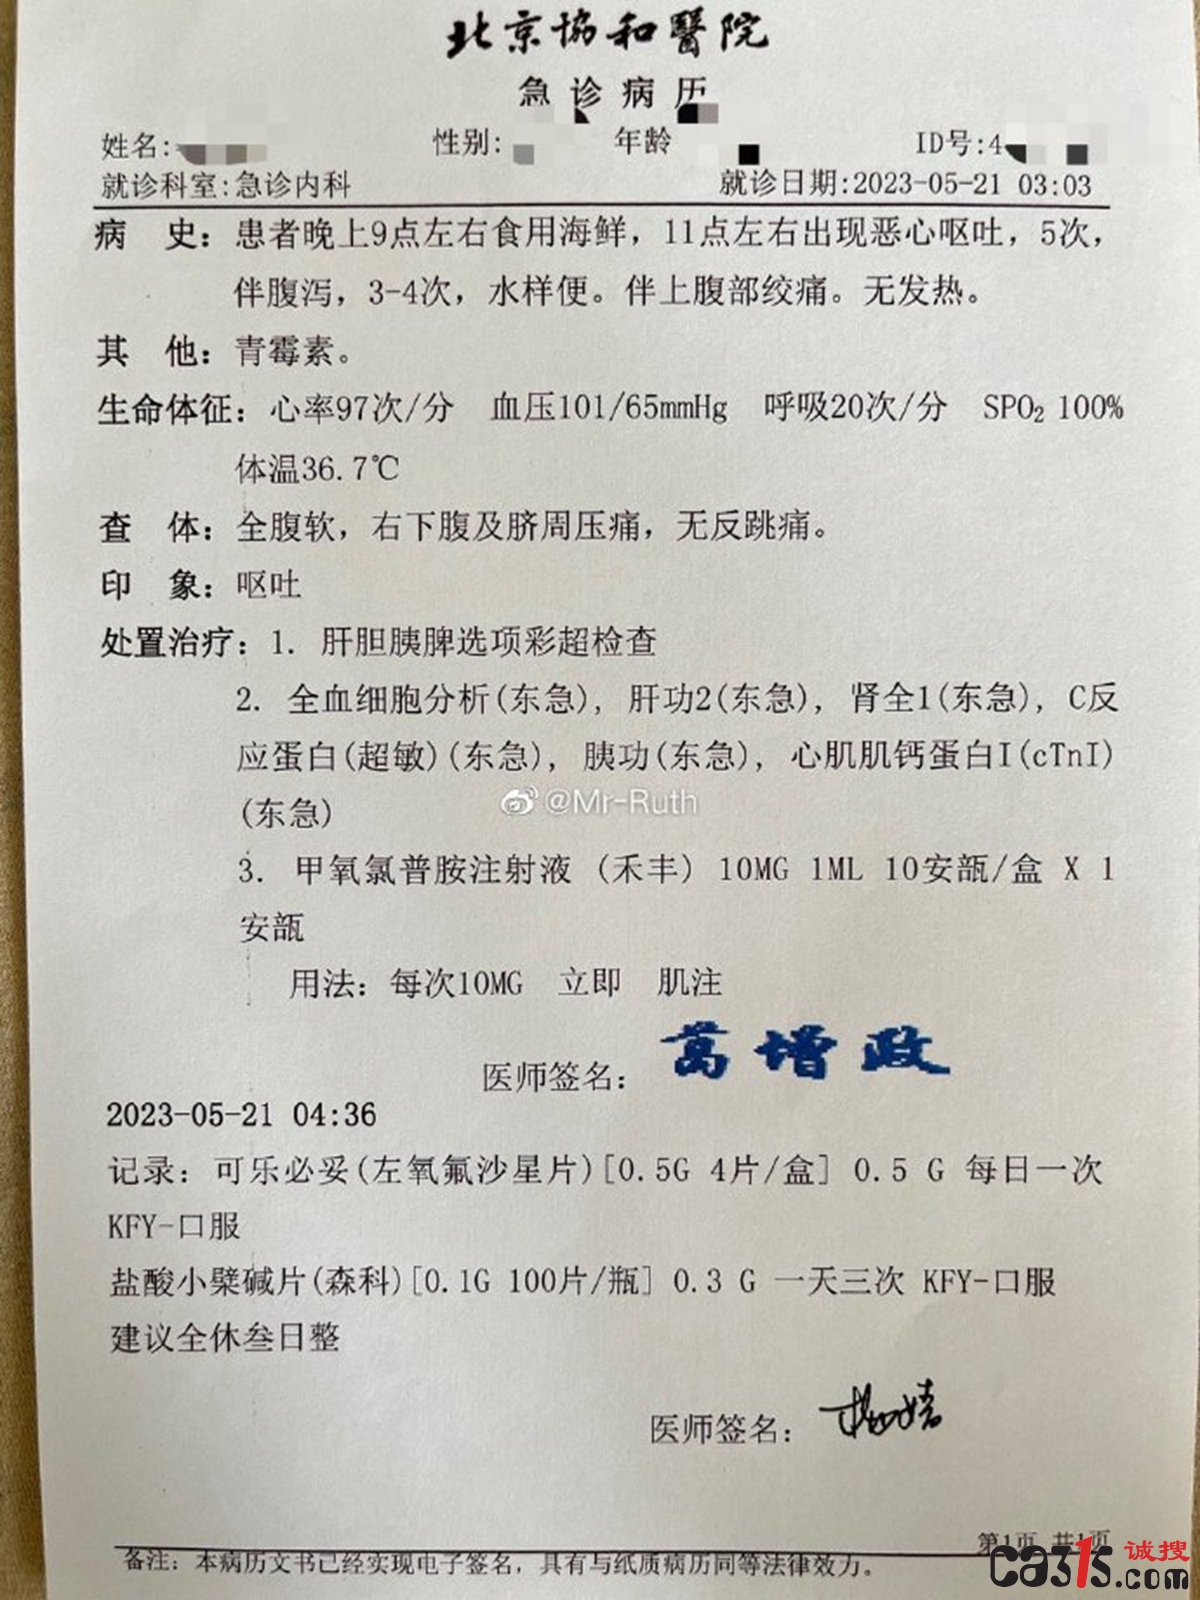 北京協和醫院
急诊病历
姓名: 性别: 年龄 ID号:4
就诊科室:急诊内科 就诊日期:2023-05-21 03:03
病 史: 患者晚上9点左右食用海鲜，11点左右出现恶心呕吐，5次，
伴腹泻，3-4次，水样便。伴上腹部绞痛。无发热。
其 他: 青霉素。
生命体征: 心率97次/分 血压101/65mmHg 呼吸20次/分 SPO₂ 100%
体温36.7℃
查 体: 全腹软，右下腹及脐周压痛，无反跳痛。
印 象: 呕吐
处置治疗: 1. 肝胆胰脾选项彩超检查
2. 全血细胞分析(东急), 肝功2(东急), 肾全1(东急), C反
应蛋白(超敏)(东急), 胰功(东急), 心肌肌钙蛋白I(cTnI)
(东急)
@Mr-Ruth
3. 甲氧氯普胺注射液 (禾丰) 10MG 1ML 10安瓿/盒 X 1
安瓿
用法: 每次10MG 立即 肌注
医师签名: 葛增政
2023-05-21 04:36
记录: 可乐必妥(左氧氟沙星片)[0.5G 4片/盒] 0.5 G 每日一次
KFY-口服
盐酸小檗碱片(森科)[0.1G 100片/瓶] 0.3 G 一天三次 KFY-口服
建议全休叁日整
医师签名:
第1页 共1页
备注: 本病历文书已经实现电子签名，具有与纸质病历同等法律效力。
ca315.com 诚搜